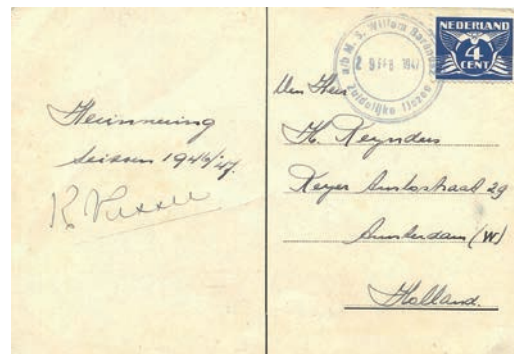 Herinnering
seizoen 1946/'47.
a/b M.S. Willem Barendsz
FEB 1947
Zuidelijke IJszee
NEDERLAND
4
CENT
Den Heer
H. Reynders
Keyer
29
Amsterdam (W)
Holland.